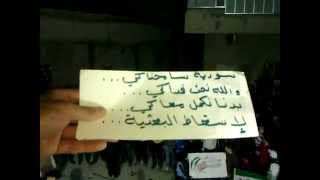 سورية سامحيني...
والله نحن فداكي....
بدنا نكمل معاكي...
لإسقاط البعثية...